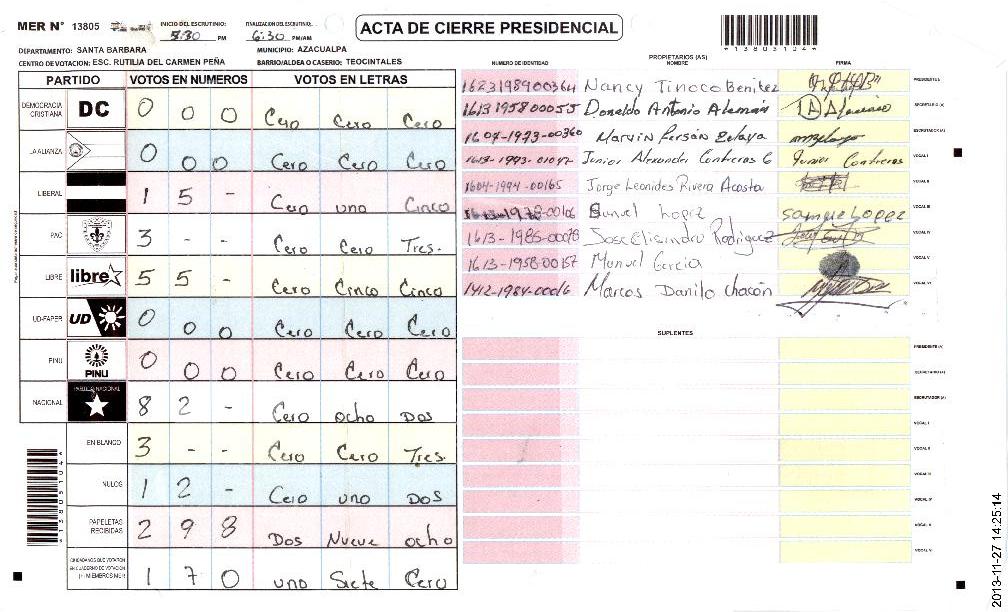 MER N° 13805
INICIO DEL ESCRUTINIO: 5:30 PM
FINALIZACION DEL ESCRUTINIO: 6:30 PM/AM
ACTA DE CIERRE PRESIDENCIAL
DEPARTAMENTO: SANTA BARBARA MUNICIPIO: AZACUALPA
CENTRO DE VOTACION: ESC. RUTILIA DEL CARMEN PEÑA BARRIO/ALDEA O CASERIO: TEOCINTALES
PARTIDO VOTOS EN NUMEROS VOTOS EN LETRAS
DEMOCRACIA CRISTIANA DC 0 0 0 Cero Cero Cero
LA ALIANZA 0 0 0 Cero Cero Cero
LIBERAL 1 5 - Cero uno Cinco
PAC 3 - - Cero Cero Tres.
LIBRE libre 5 5 - Cero Cinco Cinco
UD-FAPER UD 0 0 0 Cero Cero Cero
PINU PINU 0 0 0 Cero Cero Cero
NACIONAL PARTIDO NACIONAL 8 2 - Cero ocho Dos
EN BLANCO 3 - - Cero Cero Tres.
NULOS 1 2 - Cero uno Dos
PAPELETAS RECIBIDAS 2 9 8 Dos Nueve ocho
CIUDADANOS QUE VOTARON EN CUADERNO DE VOTACION (+) MIEMBROS MER 1 7 0 uno Siete Cero
PROPIETARIOS (AS)
NUMERO DE IDENTIDAD NOMBRE FIRMA
1623198900364 Nancy Tinoco Benitez PRESIDENTE
1613195800055 Donaldo Antonio Alemán SECRETARIO (A)
1607-1973-00360 Marvin Zelaya ESCRUTADOR (A)
1613-1993-01047 Junior Alexander Contreras G Junior Contreras VOCAL I
1604-1994-00165 Jorge Leonides Rivera Acosta VOCAL II
1978-00106 Lopez Samuel Lopez VOCAL III
1613-1985-00078 Jose Elisandro Rodriguez VOCAL IV
1613-1958-00157 Manuel Garcia VOCAL V
1412-1984-00016 Marcos Danilo Chacón VOCAL VI
SUPLENTES
PRESIDENTE (A)
SECRETARIO (A)
ESCRUTADOR (A)
VOCAL I
VOCAL II
VOCAL III
VOCAL IV
VOCAL V
VOCAL VI
1380510 4
2013-11-27 14:25:14